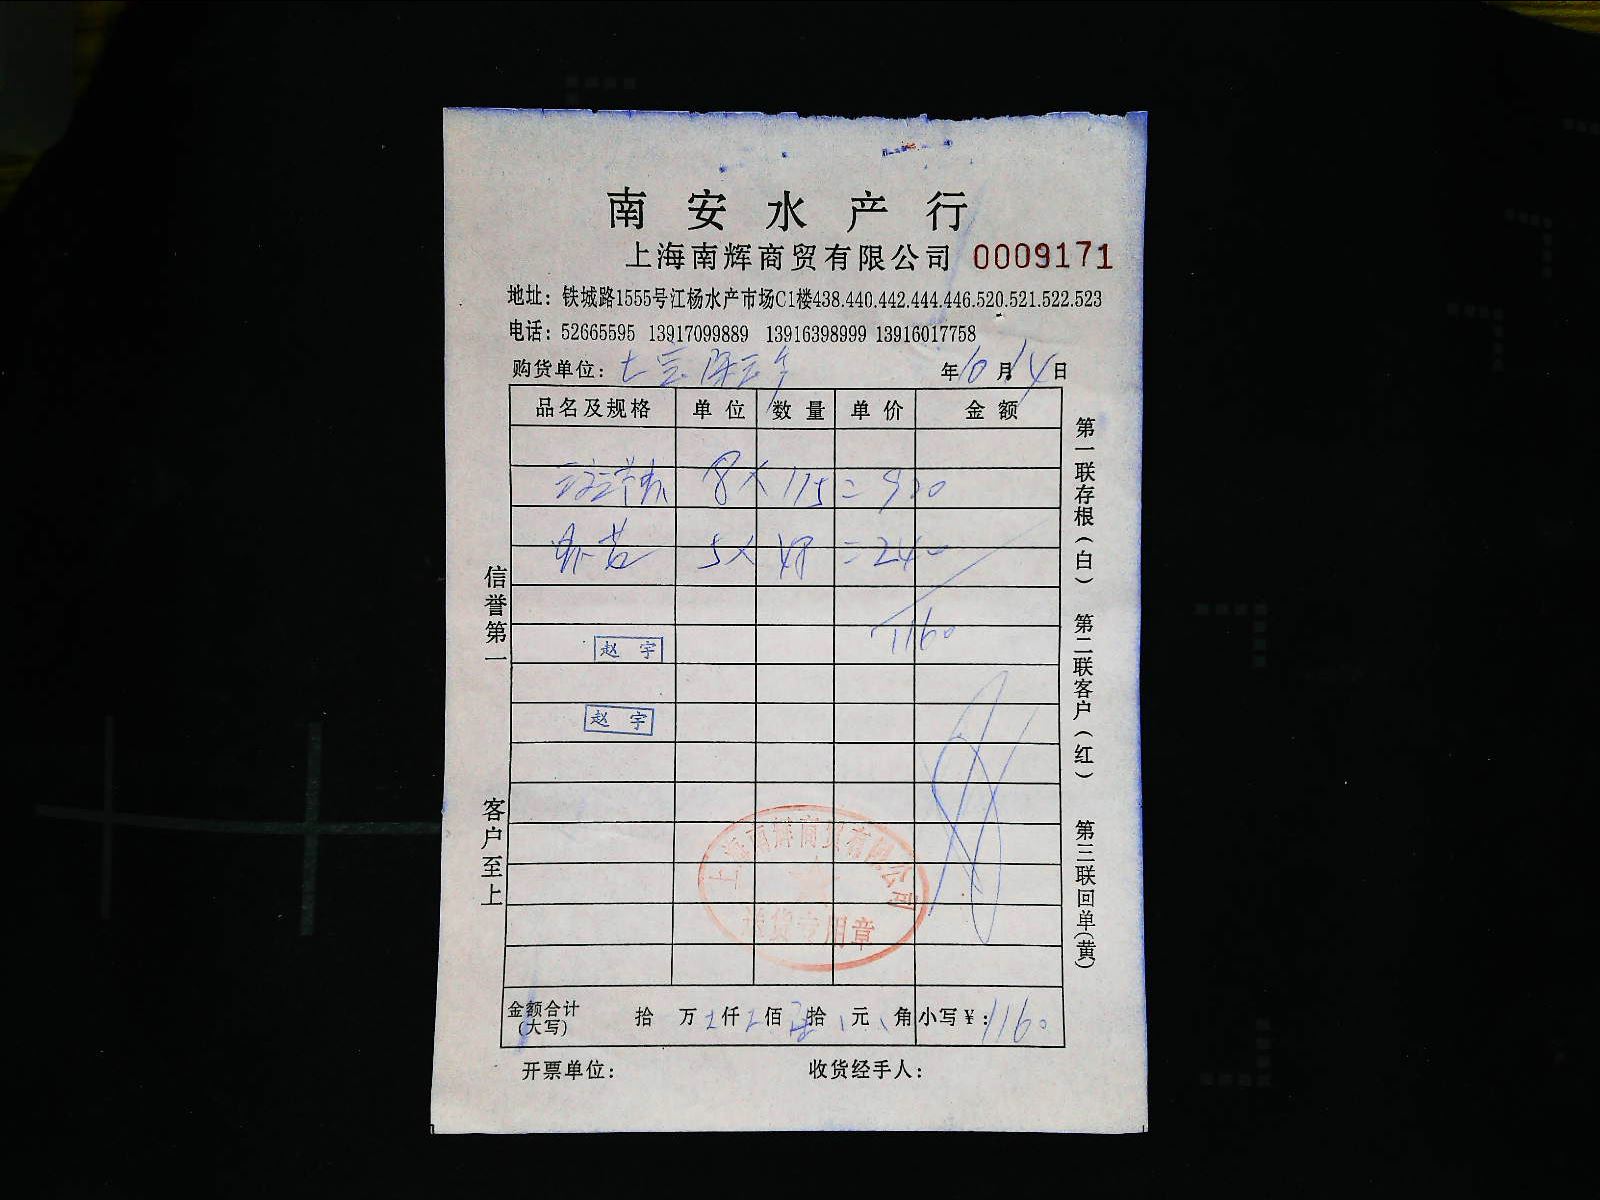 南安水产行
上海南辉商贸有限公司 0009171
地址：铁城路1555号江杨水产市场C1楼438.440.442.444.446.520.521.522.523
电话：52665595 13917099889 13916398999 13916017758
购货单位： 年10月14日
品名及规格 单位 数量 单价 金额
8 × 115 = 920
5 × 48 = 240
1160
赵宇
赵宇
信誉第一
客户至上
第一联存根（白） 第二联客户（红） 第三联回单（黄）
上海南辉商贸有限公司
送货专用章
金额合计（大写） 拾 万 仟 佰 拾 元 角 小写￥：1160
开票单位： 收货经手人：